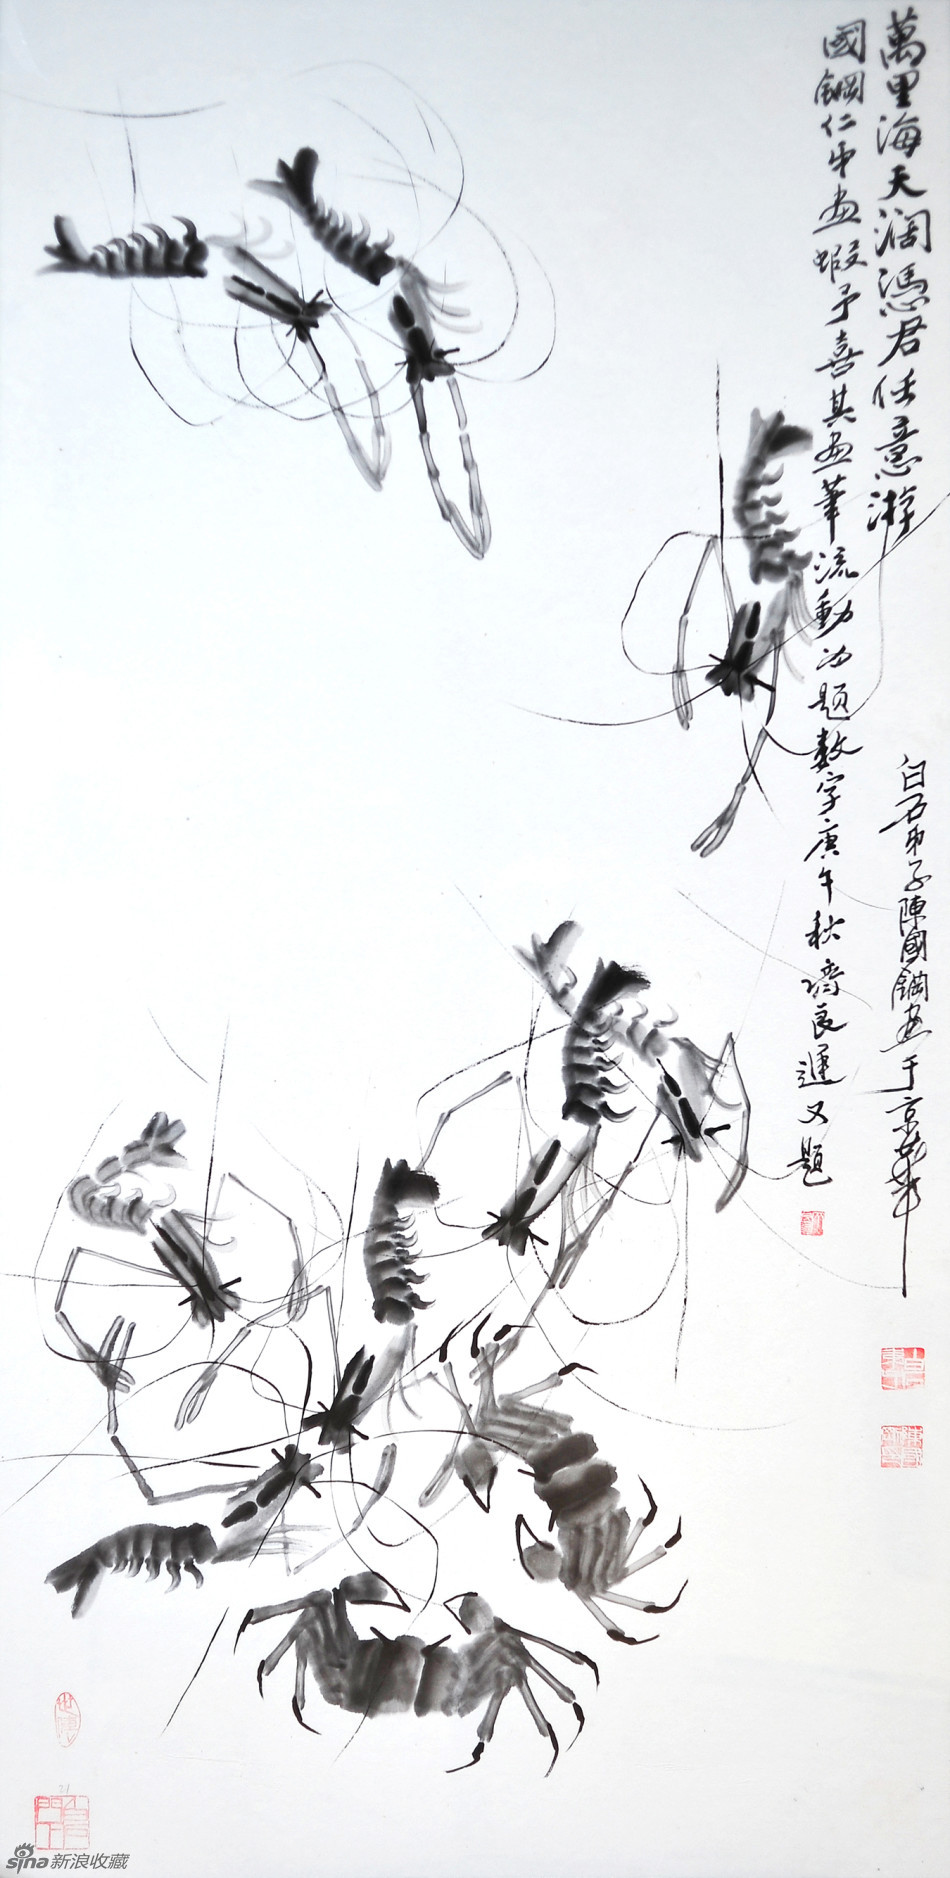 萬里海天濶憑君任意游
國鋼仁弟画蝦予喜其画筆流動為題數字庚午秋齊良遲又題
白石弟子陳國鋼画于京華
sina新浪收藏
21